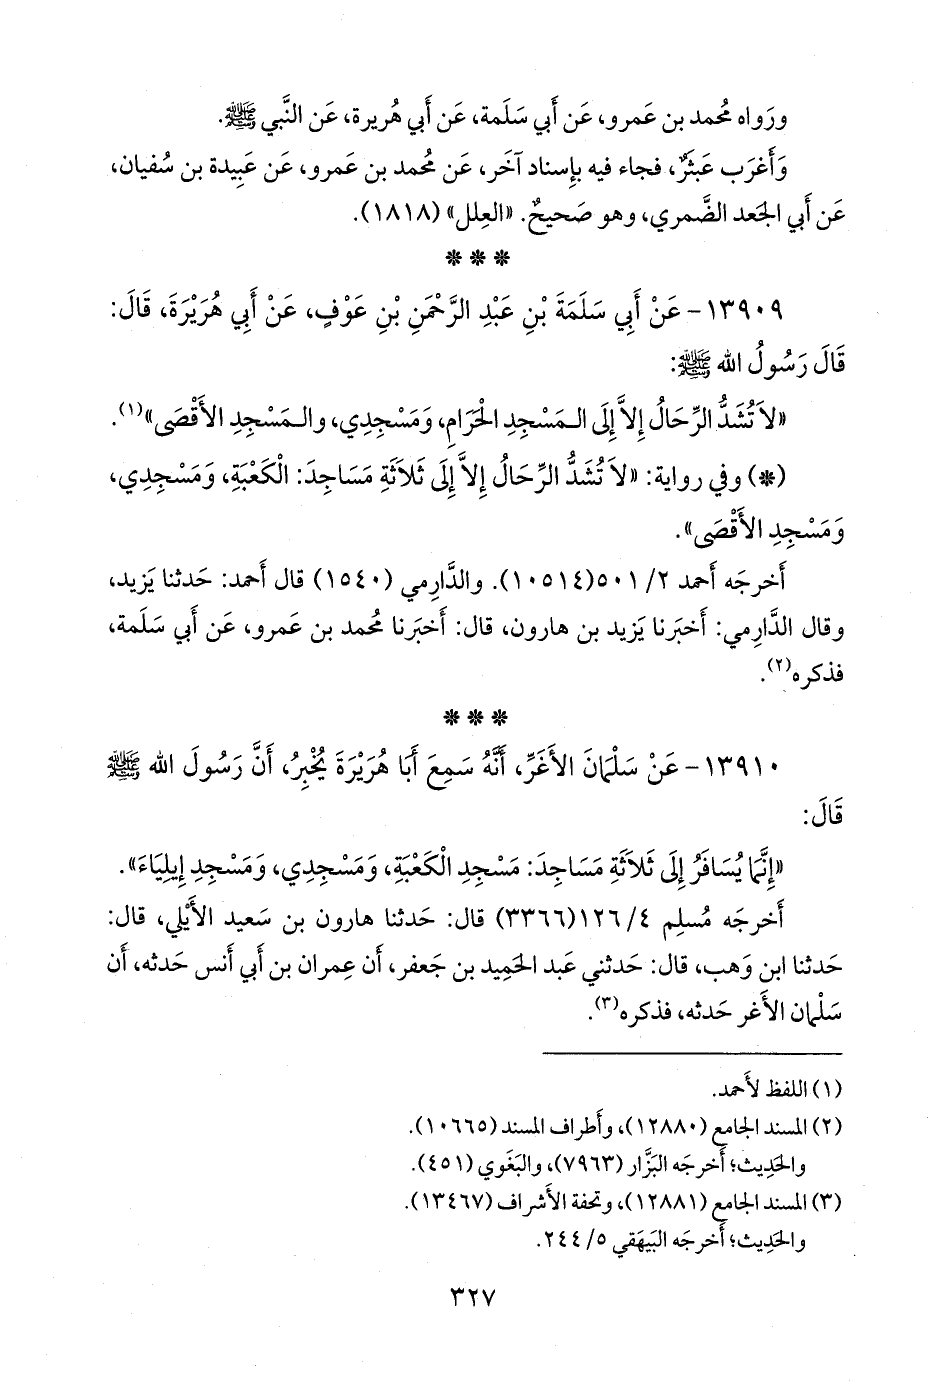 ورَواه مُحمد بن عَمرو، عَن أَبي سَلَمة، عَن أَبي هُريرة، عَن النَّبي ﷺ.
وَأَغرَب عَبثَرٌ، فجاء فيه بإِسناد آخَر، عَن مُحمد بن عَمرو، عَن عَبيدة بن سُفيان،
عَن أَبي الجَعد الضَّمري، وهو صَحيحٌ. «العِلل» (١٨١٨).
* * *
١٣٩٠٩- عَنْ أَبِي سَلَمَةَ بْنِ عَبْدِ الرَّحْمَنِ بْنِ عَوْفٍ، عَنْ أَبِي هُرَيْرَةَ، قَالَ:
قَالَ رَسُولُ الله ﷺ:
«لاَ تُشَدُّ الرِّحَالُ إِلاَّ إِلَى الـمَسْجِدِ الحَرَامِ، وَمَسْجِدِي، والـمَسْجِدِ الأَقْصَى»(١).
(*) وفي رواية: «لاَ تُشَدُّ الرِّحَالُ إِلاَّ إِلَى ثَلاَثَةِ مَسَاجِدَ: الْكَعْبَةِ، وَمَسْجِدِي،
وَمَسْجِدِ الأَقْصَى».
أَخرجَه أَحمد ٢/ ٥٠١(١٠٥١٤). والدَّارِمي (١٥٤٠) قال أَحمد: حَدثنا يَزيد،
وقال الدَّارِمي: أَخبَرنا يَزيد بن هارون، قال: أَخبَرنا مُحمد بن عَمرو، عَن أَبي سَلَمة،
فذكره(٢).
* * *
١٣٩١٠- عَنْ سَلْمَانَ الأَغَرِّ، أَنَّهُ سَمِعَ أَبَا هُرَيْرَةَ يُخْبِرُ، أَنَّ رَسُولَ الله ﷺ
قَالَ:
«إِنَّمَا يُسَافَرُ إِلَى ثَلاَثَةِ مَسَاجِدَ: مَسْجِدِ الْكَعْبَةِ، وَمَسْجِدِي، وَمَسْجِدِ إِيلِيَاءَ».
أَخرجَه مُسلِم ٤/ ١٢٦(٣٣٦٦) قال: حَدثنا هارون بن سَعيد الأَيْلي، قال:
حَدثنا ابن وَهب، قال: حَدثني عَبد الحَمِيد بن جَعفر، أَن عِمران بن أَبي أَنس حَدثه، أَن
سَلْمان الأَغر حَدثه، فذكره(٣).
(١) اللفظ لأَحمد.
(٢) المسند الجامع (١٢٨٨٠)، وأَطراف المسند (١٠٦٦٥).
والحَدِيث؛ أَخرجَه البَزَّار (٧٩٦٣)، والبَغَوي (٤٥١).
(٣) المسند الجامع (١٢٨٨١)، وتحفة الأَشراف (١٣٤٦٧).
والحَدِيث؛ أَخرجَه البَيهَقي ٥/ ٢٤٤.
٣٢٧